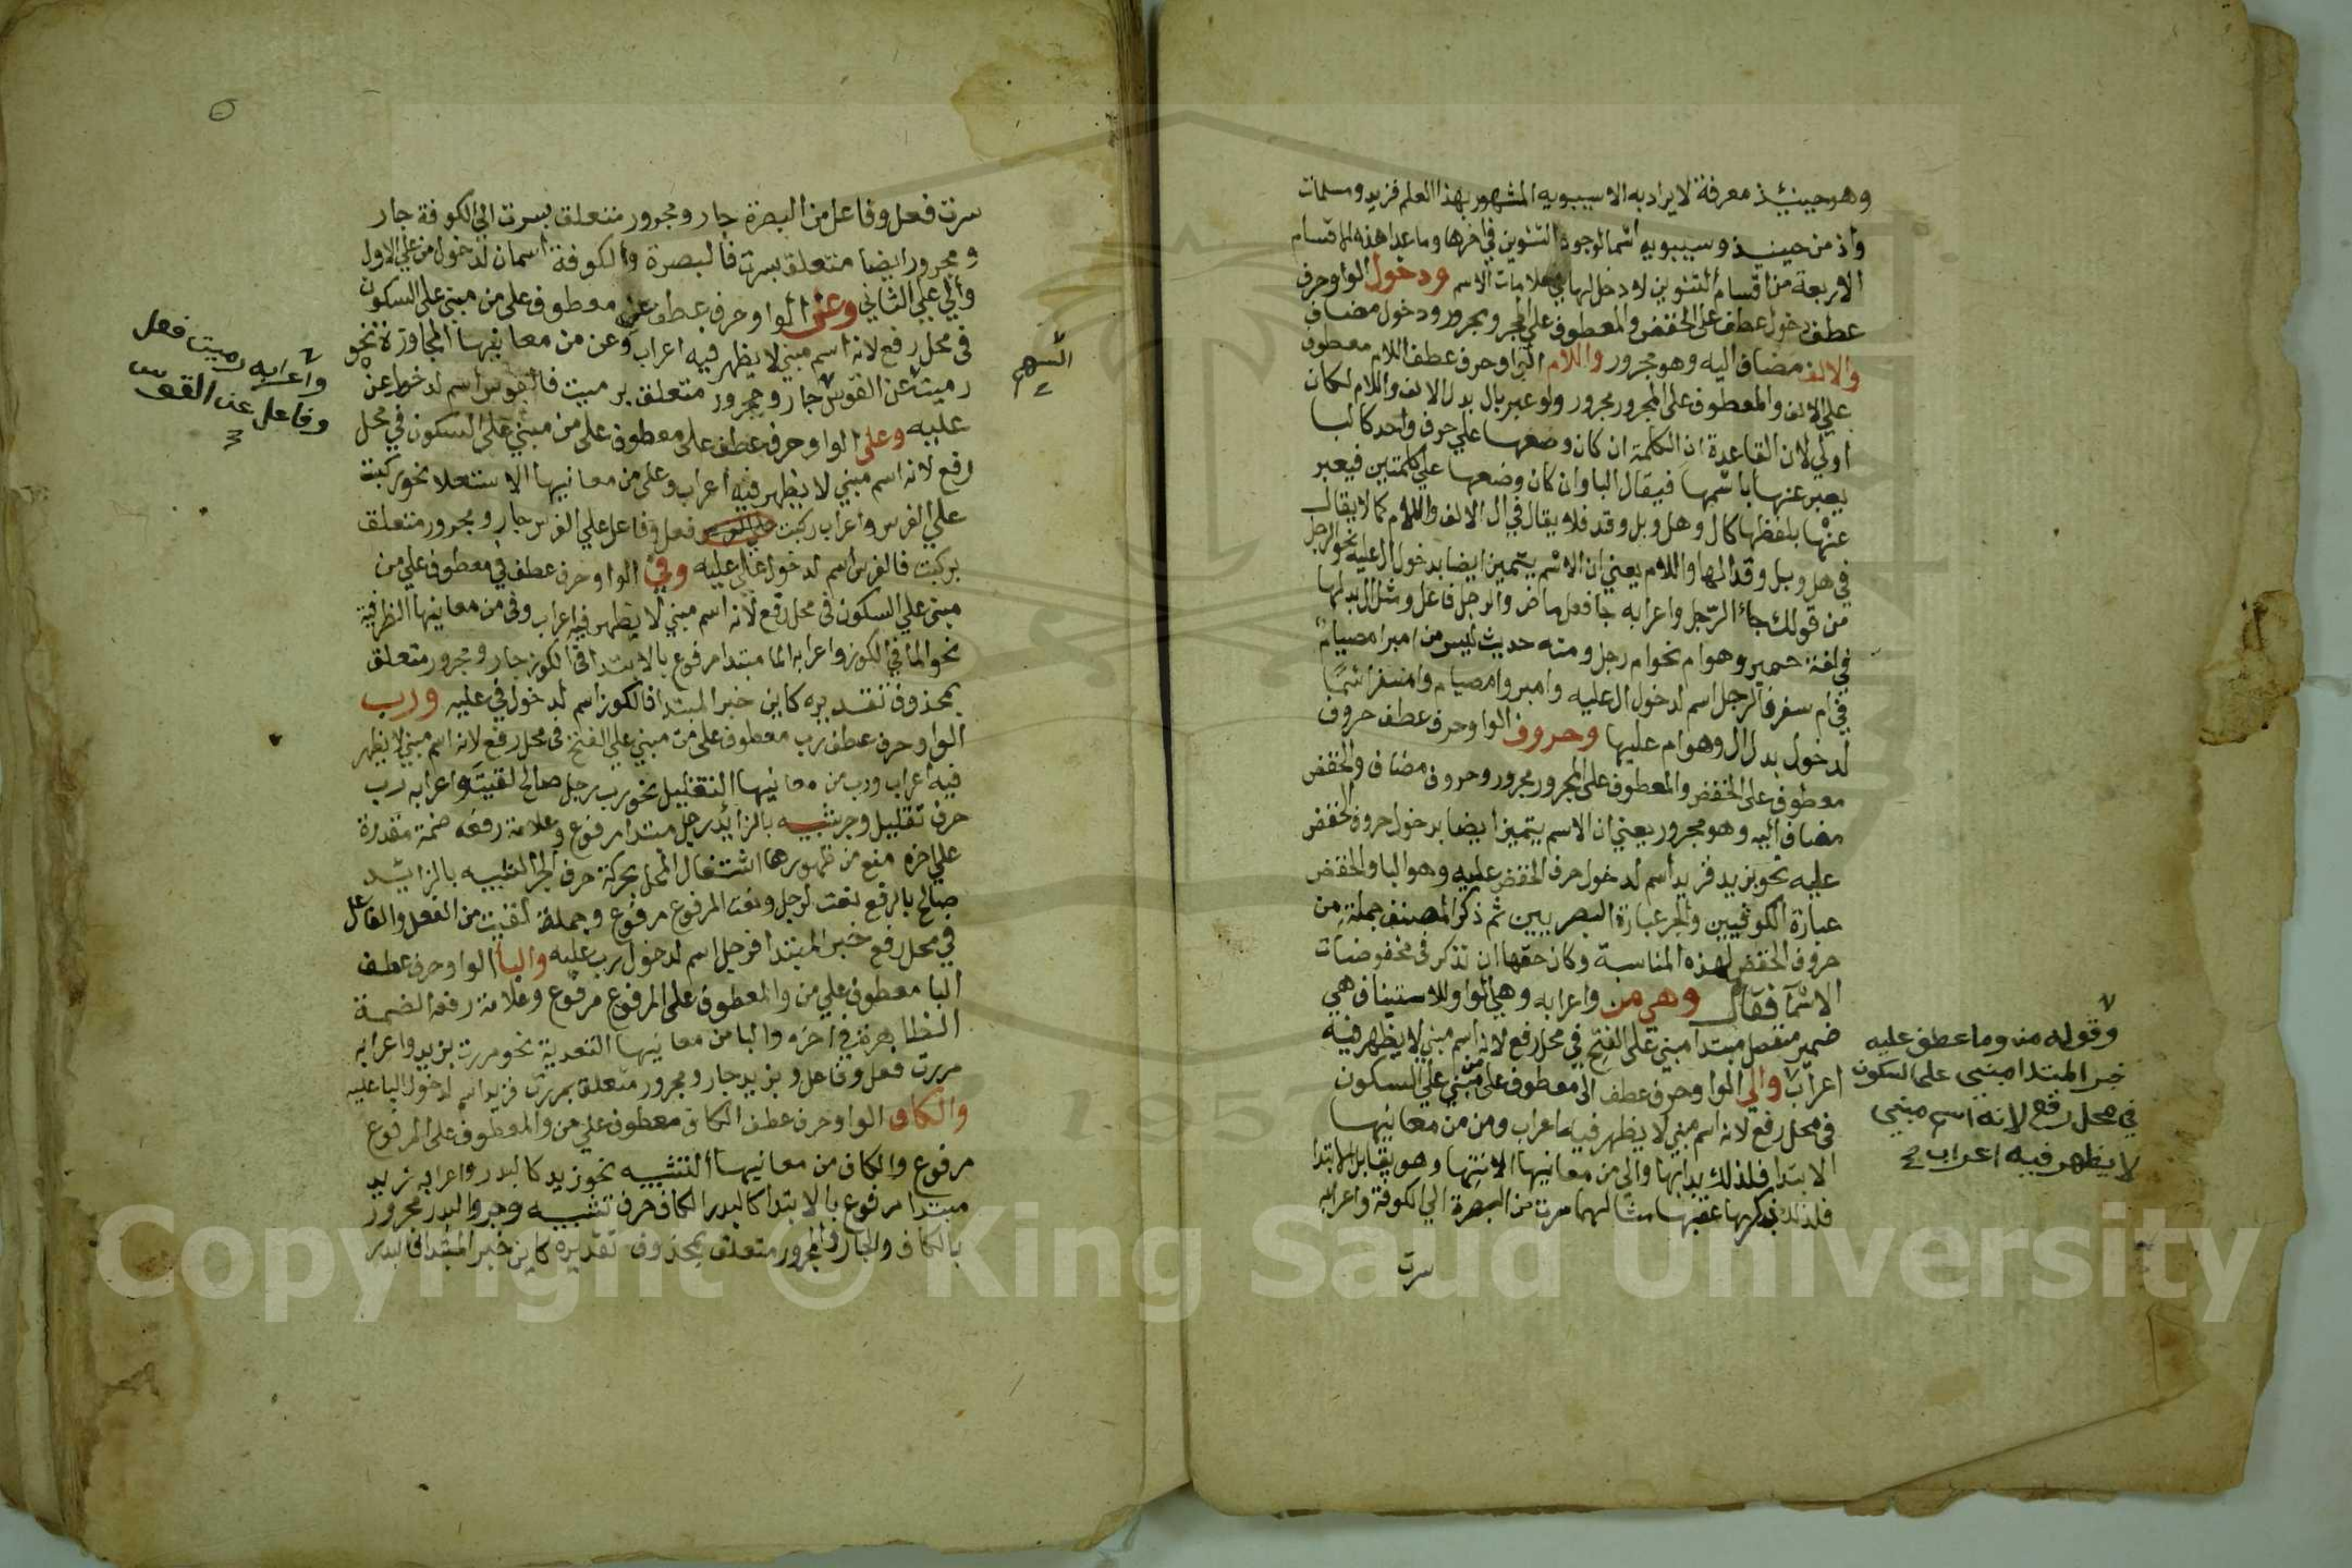 وهو حينئذ معرفة لا يراد به الا سيبويه المشهور بهذا العلم فزيد ومسلمات
واذ من حينيذ وسيبويه اسما لوجود التنوين في اخرها وما عدا هذه الاقسام
الاربعة من اقسام التنوين لا دخل لها في علامات الاسم ودخول الواو حرف
عطف دخول عطف على الخفض والمعطوف على المجرور مجرور ودخول مضاف
والالف مضاف اليه وهو مجرور واللام الواو حرف عطف اللام معطوف
على الالف والمعطوف على المجرور مجرور ولو عبر بال بدل الالف واللام لكان
اولي لان القاعدة ان الكلمة ان كان وضعها على حرف واحد كالبا
يعبر عنها باسمها فيقال البا وان كان وضعها على كلمتين فيعبر
عنها بلفظها كال وهل وبل وقد فلا يقال في ال الالف واللام كما لا يقال
في هل وبل وقد الها واللام يعني ان الاسم يتميز ايضا بدخول ال عليه نحو الرجل
من قولك جاء الرجل واعرابه جا فعل ماض والرجل فاعل ومثل ال بدلها
في لغة حمير وهو ام نحو ام رجل ومنه حديث ليس من امبر امصيام
في ام سفر فالرجل اسم لدخول ال عليه وامبر وامصيام وامسفر اسما
لدخول بدل ال وهو ام عليها وحروف الواو حرف عطف حروف
معطوف على الخفض والمعطوف على المجرور مجرور وحروف مضاف والخفض
مضاف اليه وهو مجرور يعني ان الاسم يتميز ايضا بدخول حروف الخفض
عليه نحو بزيد فزيد اسم لدخول حرف الخفض عليه وهو البا والخفض
عبارة الكوفيين والجر عبارة البصريين ثم ذكر المصنف جملة من
حروف الخفض لهذه المناسبة وكان حقها ان تذكر في مخفوضات
الاسما فقال وهي من واعرابه وهي الواو للاستيناف هي
ضمير منفصل مبتدا مبني على الفتح في محل رفع لانه اسم مبني لا يظهر فيه
اعراب والي الواو حرف عطف الى معطوف على من مبني على السكون
في محل رفع لانه اسم مبني لا يظهر فيه اعراب ومن من معانيها
الابتدا فلذلك بدا بها والي من معانيها الانتها وهو يقابل الابتدا
فلذلك ذكرها عقبها مثالهما سرت من البصرة الي الكوفة واعرابه
سرت
وقوله من وما عطف عليه
خبر المبتدا مبني على السكون
في محل رفع لانه اسم مبني
لا يظهر فيه اعراب
سرت فعل وفاعل من البصرة جار ومجرور متعلق بسرت الي الكوفة جار
ومجرور ايضا متعلق بسرت فالبصرة والكوفة اسمان لدخول من على الاول
والي على الثاني وعن الواو حرف عطف عن معطوف على من مبني على السكون
في محل رفع لانه اسم مبني لا يظهر فيه اعراب وعن من معانيها المجاوزة نحو
رميت عن القوس جار ومجرور متعلق برميت فالقوس اسم لدخول عن
عليه وعلى الواو حرف عطف على معطوف على من مبني على السكون في محل
رفع لانه اسم مبني لا يظهر فيه اعراب وعلى من معانيها الاستعلا نحو ركبت
على الفرس واعراب ركبت فعل وفاعل على الفرس جار ومجرور متعلق
بركبت فالفرس اسم لدخول على عليه وفي الواو حرف عطف في معطوف على من
مبني على السكون في محل رفع لانه اسم مبني لا يظهر فيه اعراب وفي من معانيها الظرفية
نحو الما في الكوز واعرابه الما مبتدا مرفوع بالابتدا في الكوز جار ومجرور متعلق
بمحذوف تقديره كاين خبر المبتدا فالكوز اسم لدخول في عليه ورب
الواو حرف عطف رب معطوف على من مبني على الفتح في محل رفع لانه اسم مبني لا يظهر
فيه اعراب ورب من معانيها التقليل نحو رب رجل صالح لقيته واعرابه رب
حرف تقليل وجر شبيه بالزايد رجل مبتدا مرفوع وعلامة رفعه ضمة مقدرة
على اخره منع من ظهورها اشتغال المحل بحركة حرف الجر الشبيه بالزايد
صالح بالرفع نعت لرجل ونعت المرفوع مرفوع وجملة لقيت من الفعل والفاعل
في محل رفع خبر المبتدا فرجل اسم لدخول رب عليه والبا الواو حرف عطف
البا معطوف على من والمعطوف على المرفوع مرفوع وعلامة رفعه الضمة
الظاهرة في اخره والبا من معانيها التعدية نحو مررت بزيد واعرابه
مررت فعل وفاعل وبزيد جار ومجرور متعلق بمررت فزيد اسم لدخول البا عليه
والكاف الواو حرف عطف الكاف معطوف على من والمعطوف على المرفوع
مرفوع والكاف من معانيها التشبيه نحو زيد كالبدر واعرابه زيد
مبتدا مرفوع بالابتدا كالبدر الكاف حرف تشبيه وجر والبدر مجرور
بالكاف والجار والمجرور متعلق بمحذوف تقديره كاين خبر المبتدا فالبدر
السهم
واعرابه رميت فعل
وفاعل عن القوس
Copyright © King Saud University
1957